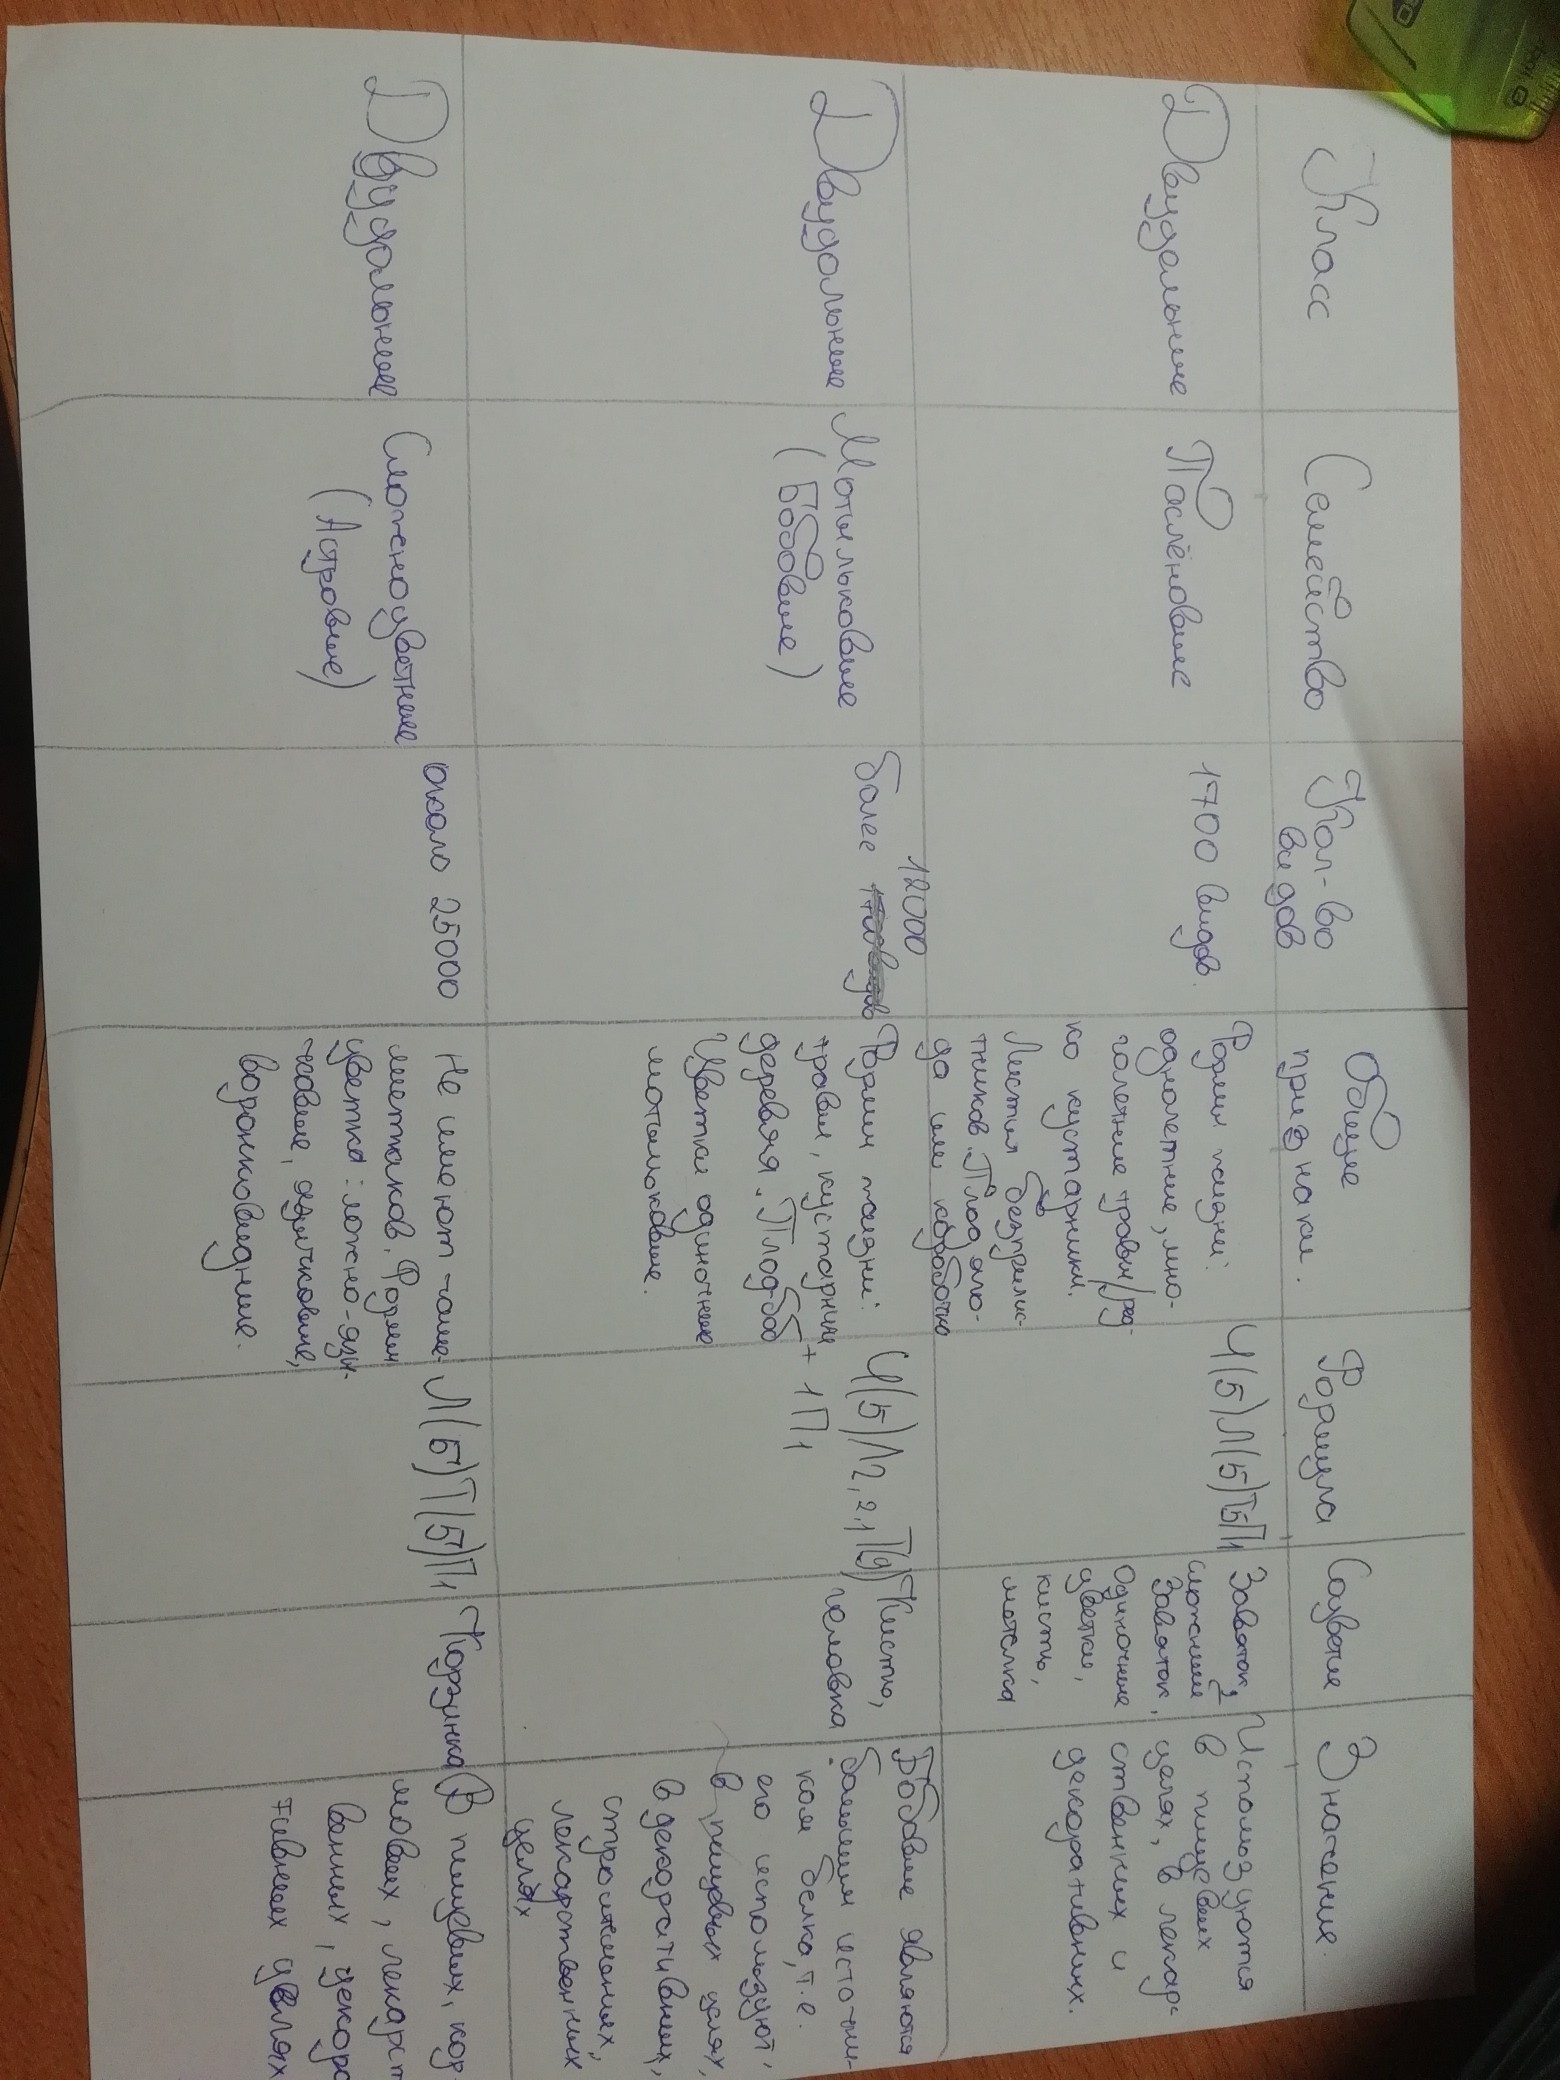 Класс
Семейство
Кол-во
видов
Общие
признаки.
Формула
Соцветие
Значение.
Двудольные
Паслёновые
1700 видов.
Формы жизни:
однолетние, мно-
голетние травы/ред-
ко кустарники.
Листья безприлис-
тников. Плод яго-
да или коробочка
Ч(5)Л(5)Т5П1
Завиток,
сложные
завиток,
одиночные
цветки,
кисть,
метелка
Используются
в пищевых
целях, в лекар-
ственных и
декоративных.
Двудольные
Мотыльковые
(Бобовые)
12000
более
Формы жизни:
травы, кустарники
деревья. Плод-боб
Цветки одиночные
мотыльковые.
Ч(5)Л1,2,1Т(9)
+1П1
Кисть,
головка
Бобовые являются
большим источни-
ком белка, т.е.
его используют,
в пищевых целях,
в декоративных,
строительных,
лекарственных
целях
Двудольные
Сложноцветные
(Астровые)
около 25000
Не имеют чаше-
листиков. Формы
цветка: ложно-язы-
чковые, язычковые,
воронковидные.
Л(5)Т(5)П1
Корзинка
В пищевых, кор-
мовых, лекарст
венных, декора
тивных целях